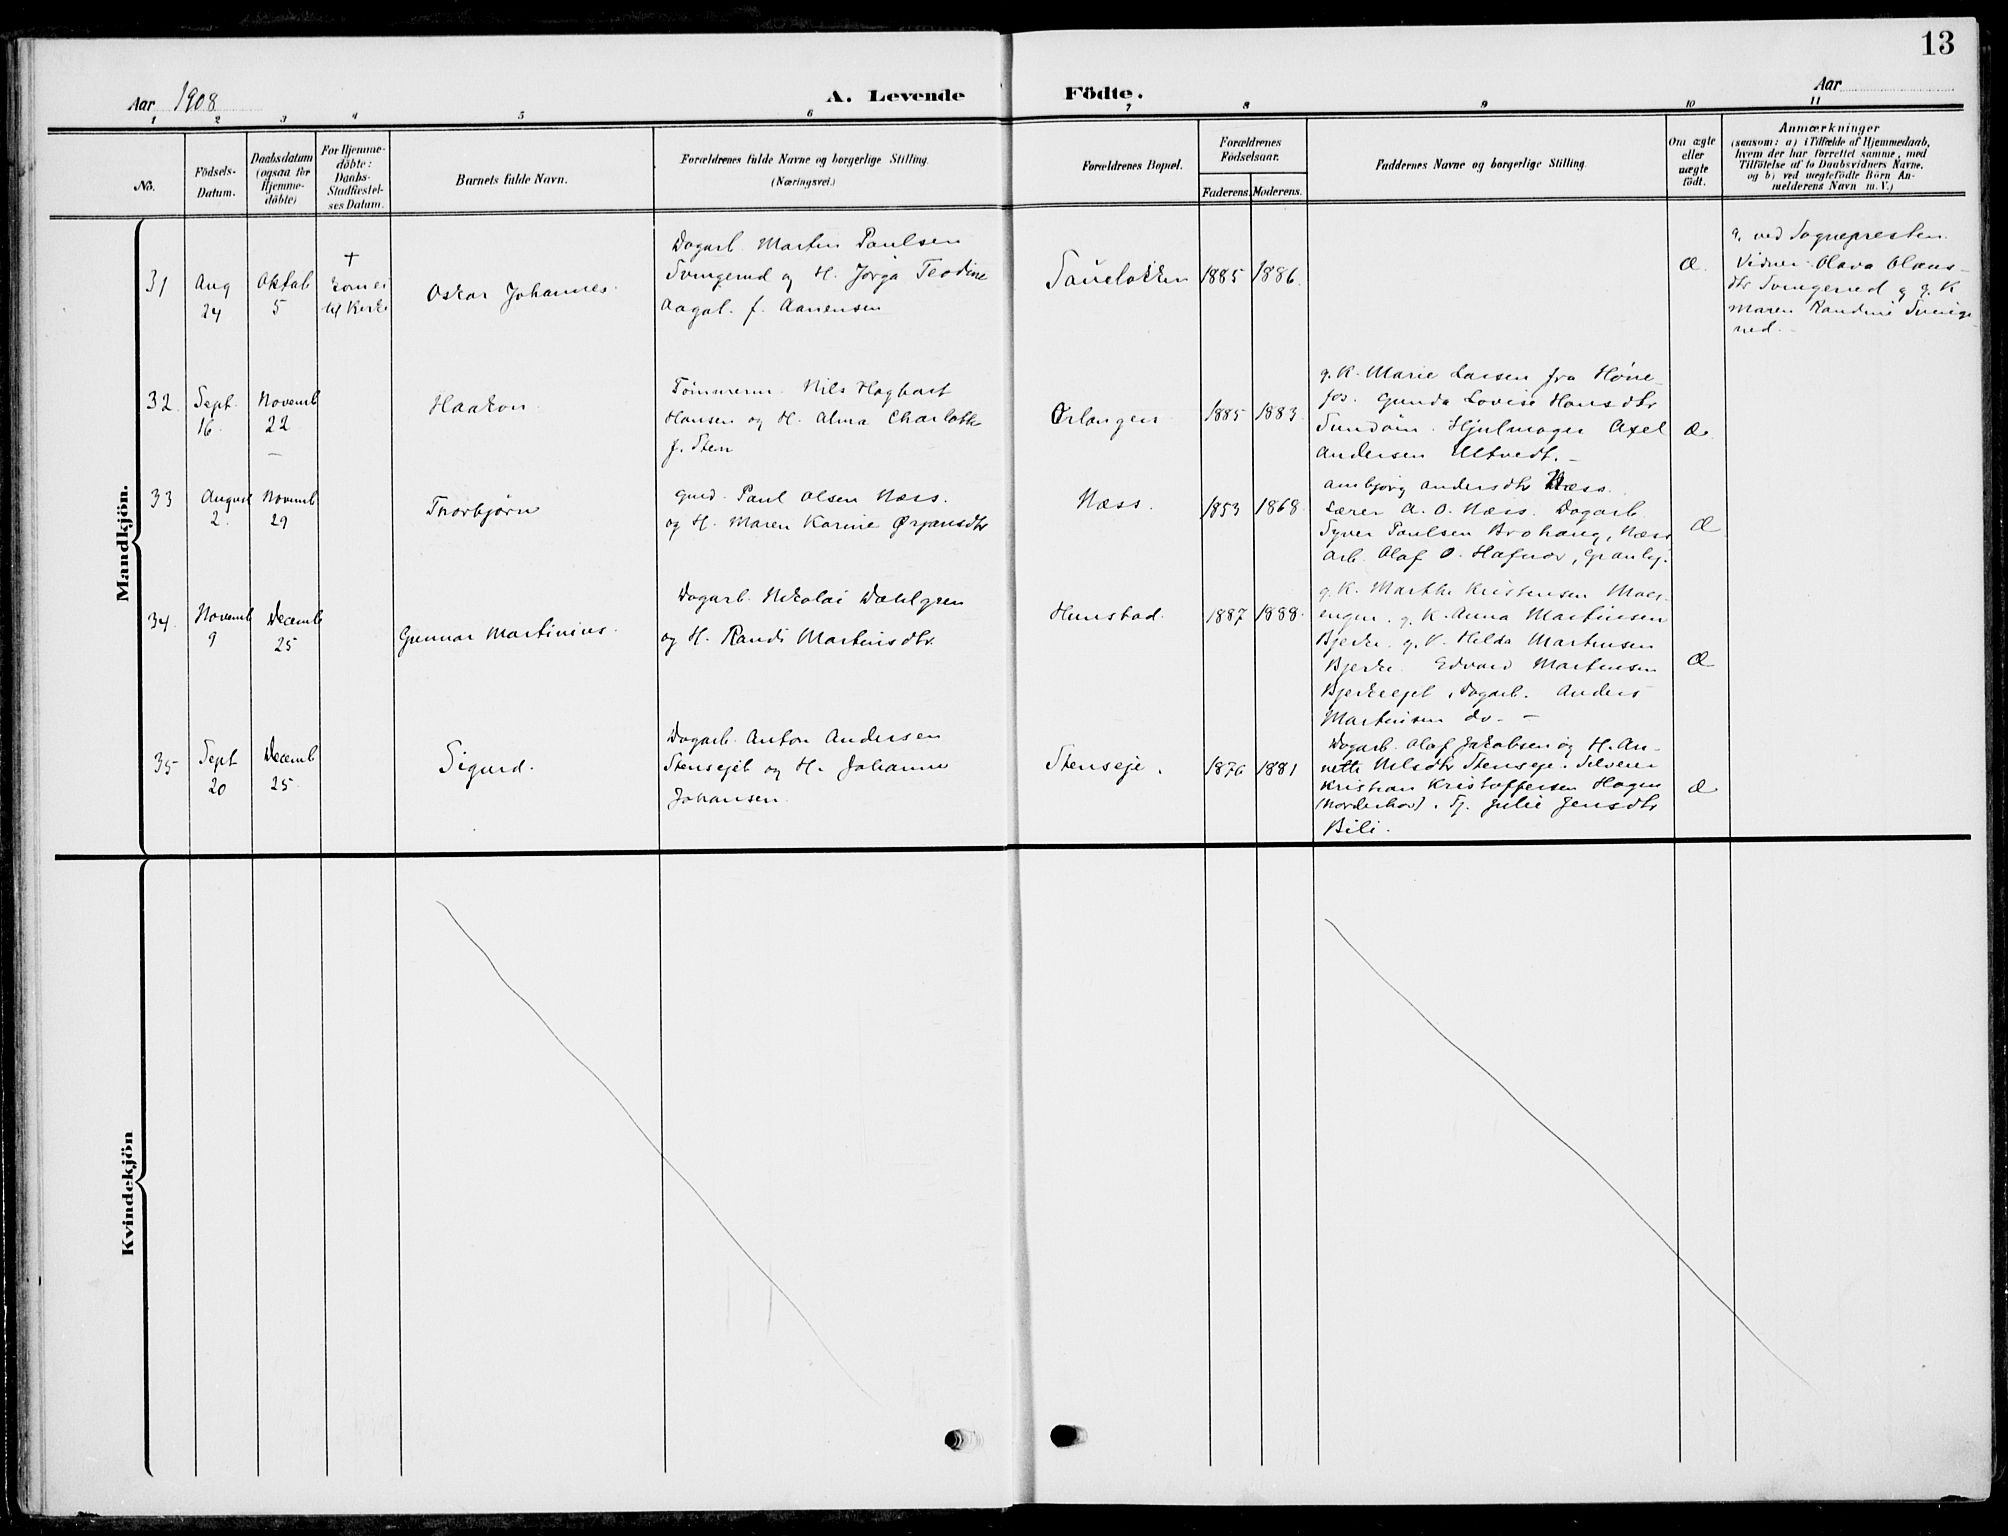 13
Aar 1908
A. Levende Födte.
Aar
1 2 3 4 5 6 7 8 9 10 11
No.
Födsels-
Datum.
Daabsdatum
(ogsaa for
Hjemme-
döbte)
For Hjemme-
döbte:
Daabs-
Stadfæstel-
ses Datum.
Barnets fulde Navn.
Forældrenes fulde Navne og borgerlige Stilling.
(Næringsvei.)
Forældrenes Bopæl.
Forældrenes
Födselsaar.
Faderens. Moderens.
Faddernes Navne og borgerlige Stilling.
Om ægte
eller
uægte
födt.
Anmærkninger
(saasom: a) i Tilfælde af Hjemmedaab,
hvem der har forrettet samme, med
Tilföielse af to Daabsvidners Navne.
og b) ved uægtefödte Börn An-
melderens Navn m. V.)
Mandkjön.
31
Aug
24
Oktob
5
+
kom ei
til Kirke
Oskar Johannes.
Dagarb. Martin Paulsen
Svingerud og H. Jørga Teodine
Aagot. f. Aanensen
1885
1886.
Æ.
a. ved Sognepresten.
Vidner. Olava Olaus-
dtr Svingerud og g. K
Maren Randine Svinge-
rud. -
32
Sept.
16.
Novemb
22
Haakon.
Tømmerm. Nils Hagbart
Hansen og H. Alma Charlotte
f. Sten
Ørlangen
1885
1883.
g. K. Marie Larsen fra Høne-
fos. Gunda Lovise Hansdtr
Hjulmager Axel
Andersen Ultvedt. -
Æ.
33
August
2.
Novemb
29
Thorbjørn
Gmd. Paul Olsen Næss.
og H. Maren Karine Ørjansdtr
Næss.
1853
1868.
Ambjørg Andersdtr Næss.
Lærer A. O. Næss. Dagarb.
Syver Paulsen Brohaug, Næss
Arb. Olaf O. Hafnor, Granby.
Æ
34.
Novemb
9
Decemb
25
Gunnar Martinius.
Dagarb. Nikolai Dahlgren
og H. Randi Martinsdtr.
Hunstad.
1887
1888.
g. K. Marthe Kristensen Moes-
engen. g. K. Anna Martinsen
Bjerke. g. K. Hilda Martinsen
Bjerke. Edvard Martinsen
Bjerkeejet, Dagarb. Anders
Martinsen do. -
Æ
35
Sept
20
Decemb
25.
Sigurd.
Dagarb. Anton Andersen
Stensejet og H. Johanne
Johansen.
Stenseje.
1876
1881
Dagarb. Olaf Jakobsen og H. An-
nette Nilsdtr Stenseje. Selveier
Kristian Kristoffersen Hagen
(Norderhov). Tj. Julie Jensdtr
Bili.
Æ
Kvindekjön